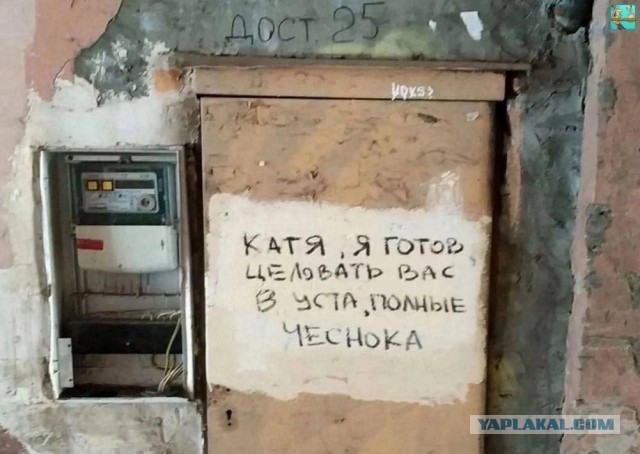 ДОСТ. 25
КАТЯ, Я ГОТОВ
ЦЕЛОВАТЬ ВАС
В УСТА, ПОЛНЫЕ
ЧЕСНОКА
YAPLAKAL.COM